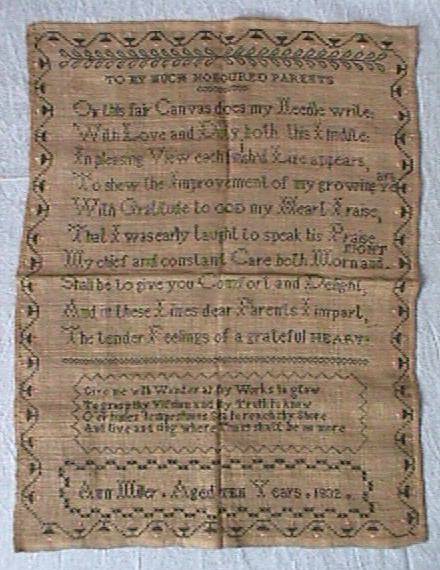 TO MY MUCH HONOURED PARENTS
On this fair Canvas does my Needle write;
With Love and Duty both this I indite:
In pleasing View each Line appears,
To shew the Improvement of my growing Ye ars
With Gratitude to GOD my Heart I raise,
That I was early taught to speak his Praise,
My chief and constant Care both Morn and NIGHT
Shall be to give you Comfort and Delight,
And in these Lines dear Parents I impart,
The tender Feelings of a grateful HEART.
Give me with Wonder at thy Works to glow
To grasp thy Vision and thy Truth to know
O'er tempestuous Sea to reach thy Shore
And live and sing where Time shall be no more
Ann Miller . Aged TEN Years . 1802 .